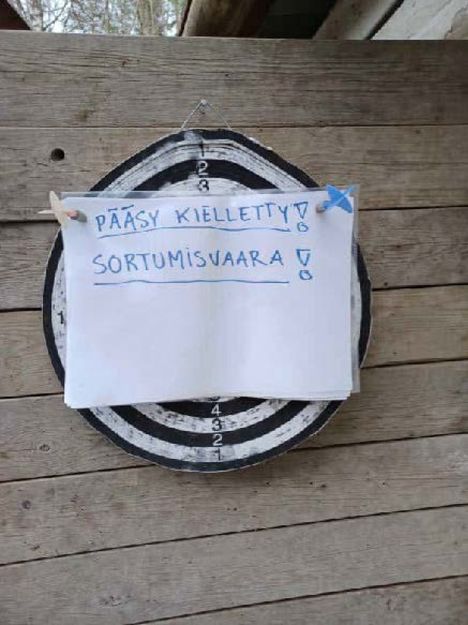 1
2
3
PÄÄSY KIELLETTY!
SORTUMISVAARA!
1
4
3
2
1